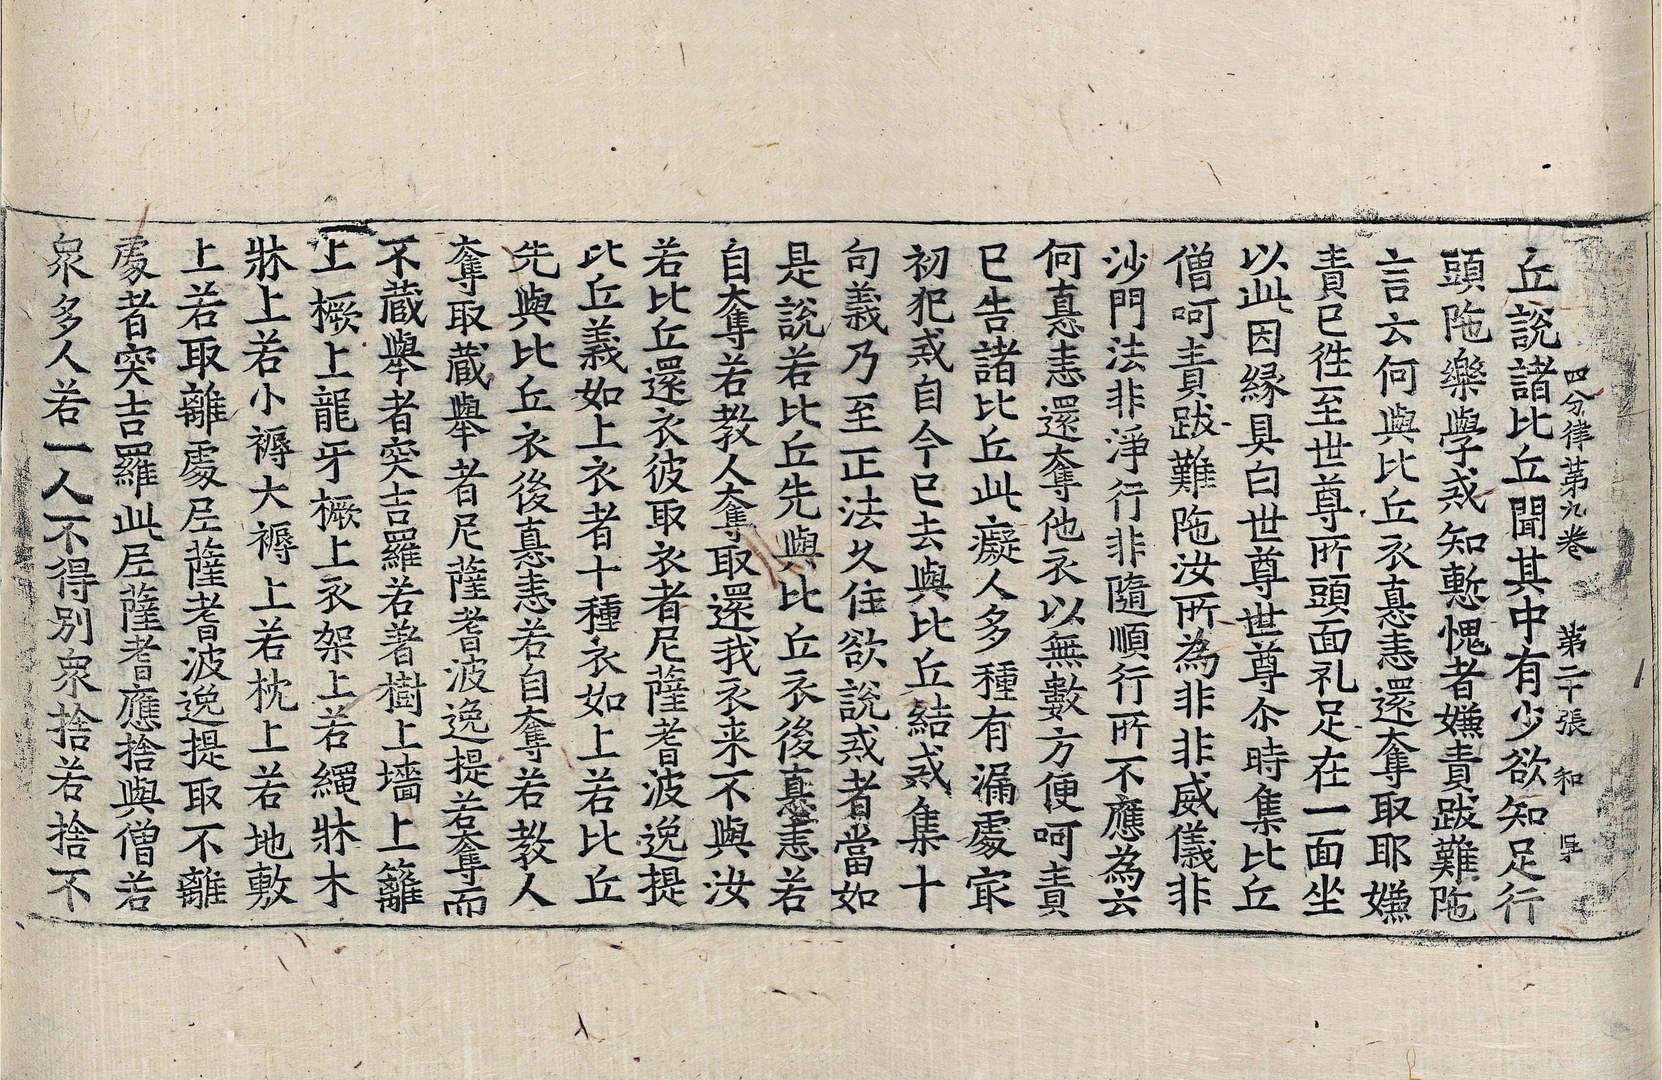 四分律第九卷 第二十張 和
丘說諸比丘聞其中有少欲知足行
頭陁樂學戒知慙愧者嫌責跋難陁
言云何與比丘衣瞋恚還奪取耶嫌
責已徃至世尊所頭面礼足在一面坐
以此因緣具白世尊世尊尒時集比丘
僧呵責跋難陁汝所為非非威儀非
沙門法非淨行非隨順行所不應為云
何瞋恚還奪他衣以無數方便呵責
已告諸比丘此癡人多種有漏處㝡
初犯戒自今已去與比丘結戒集十
句義乃至正法久住欲說戒者當如
是說若比丘先與比丘衣後瞋恚若
自奪若教人奪取還我衣来不與汝
若比丘還衣彼取衣者尼薩耆波逸提
比丘義如上衣者十種衣如上若比丘
先與比丘衣後瞋恚若自奪若教人
奪取藏舉者尼薩耆波逸提若奪而
不藏舉者突吉羅若著樹上墻上籬
上橛上龍牙橛上衣架上若繩牀木
牀上若小褥大褥上若枕上若地敷
上若取離處尼薩耆波逸提取不離
處者突吉羅此尼薩耆應捨與僧若
衆多人若一人不得別衆捨若捨不